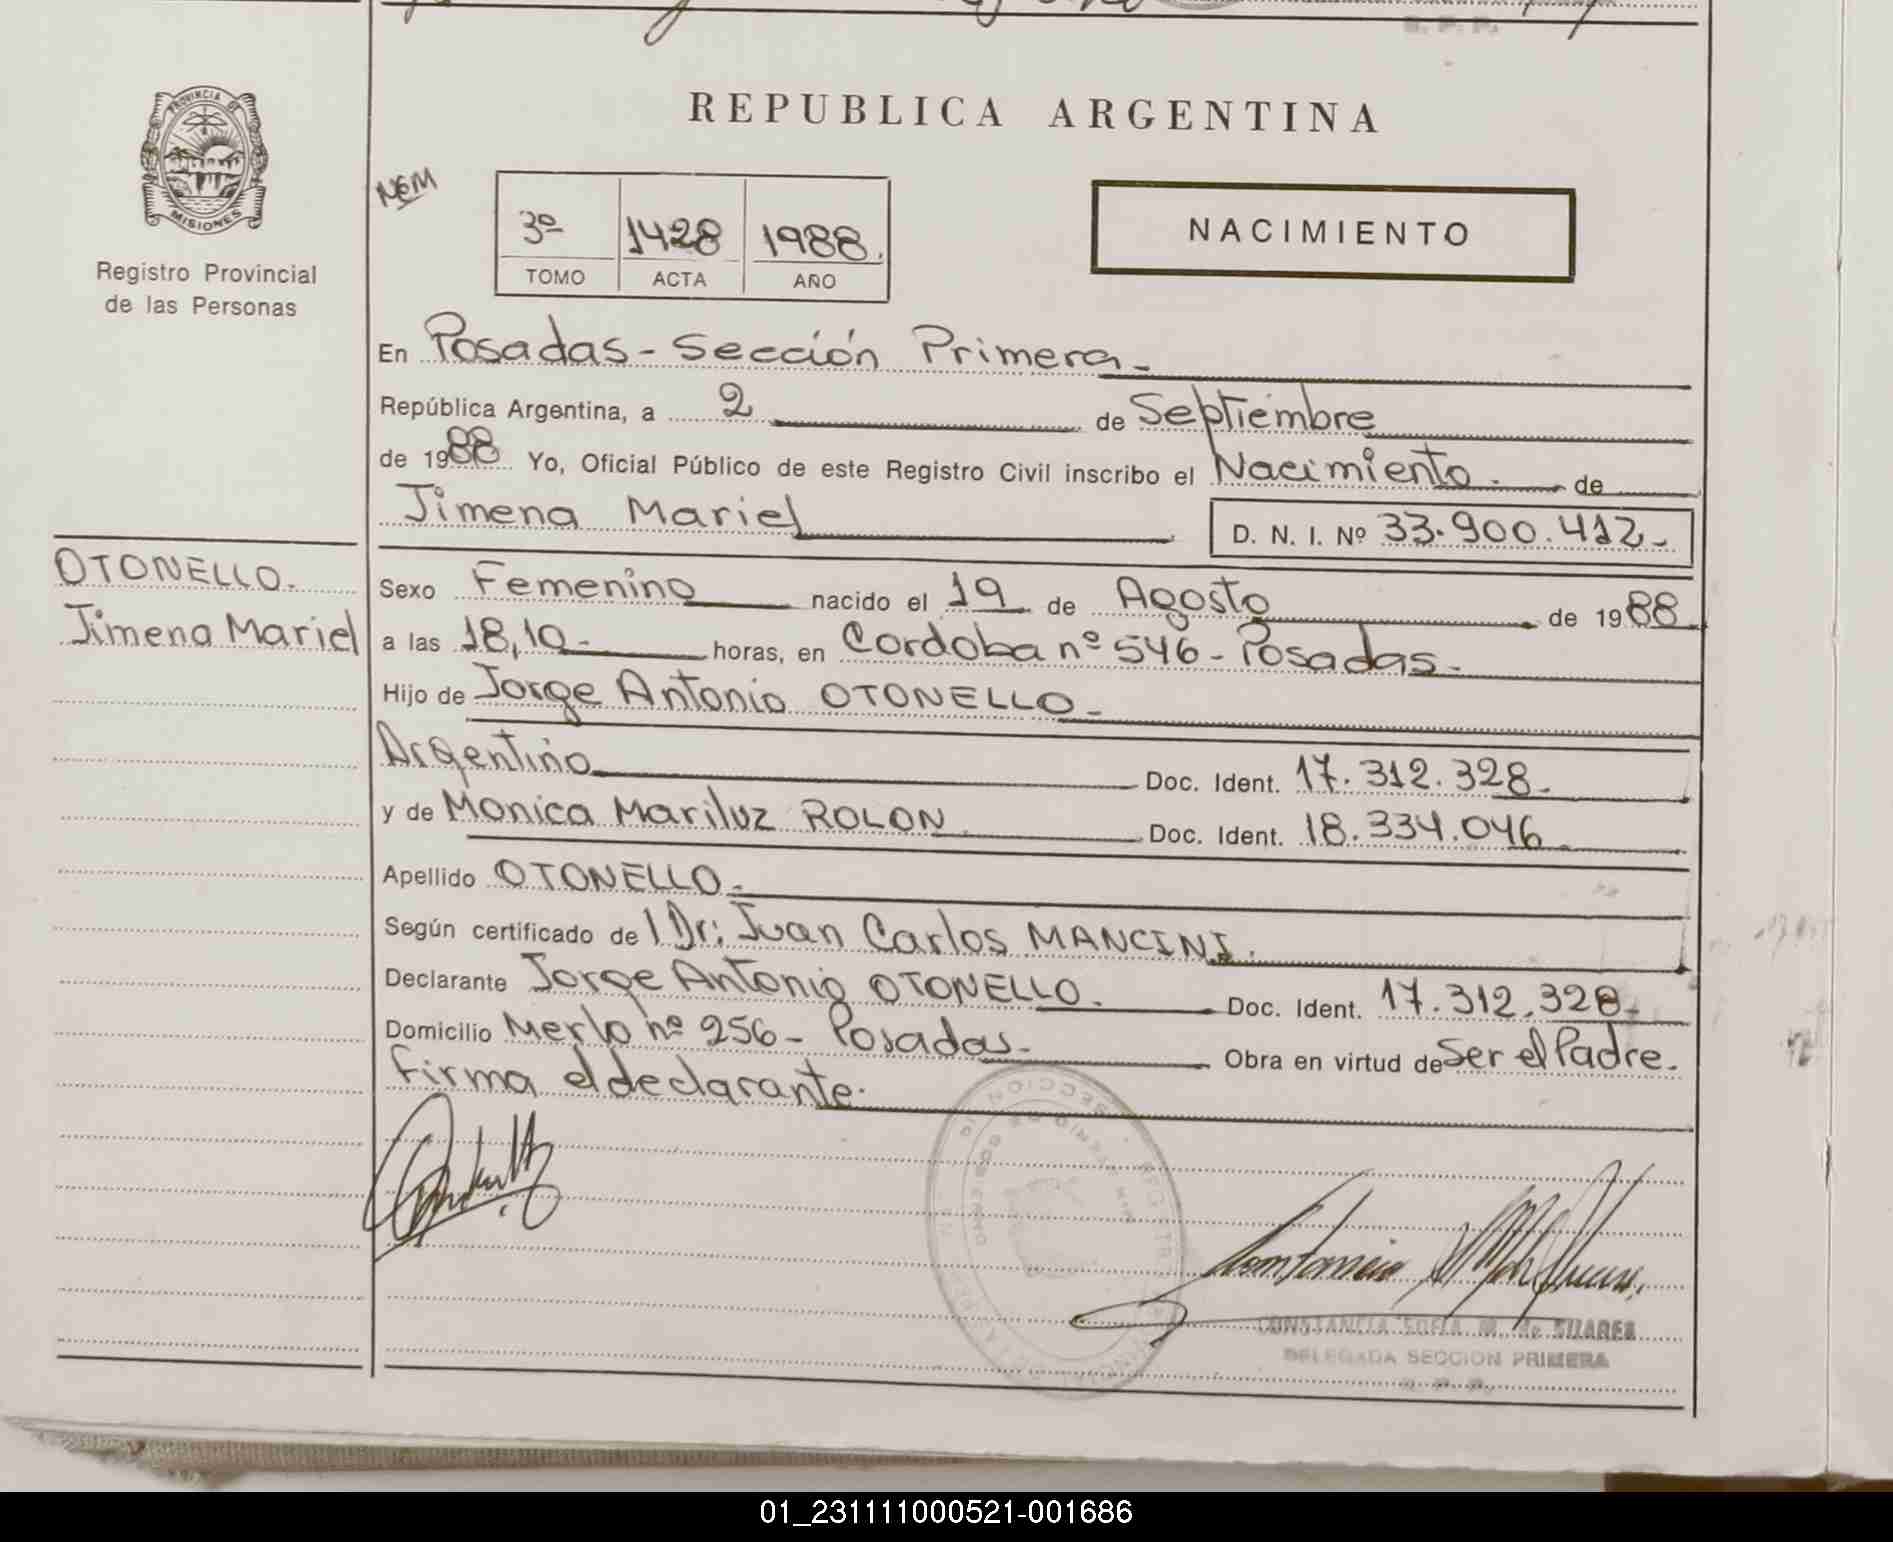 PROVINCIA DE
MISIONES
Registro Provincial
de las Personas
REPUBLICA ARGENTINA
NEM
3º 1428 1988.
TOMO ACTA AÑO
NACIMIENTO
En Posadas - Sección Primera -
República Argentina, a 2 de Septiembre
de 1988 Yo, Oficial Público de este Registro Civil inscribo el Nacimiento. de
Jimena Mariel D. N. I. Nº 33.900.412-
OTONELLO.
Jimena Mariel
Sexo Femenino nacido el 19 de Agosto de 1988
a las 18,10- horas, en Cordoba nº 546 - Posadas -
Hijo de Jorge Antonio OTONELLO -
Argentino Doc. Ident. 17.312.328-
y de Monica Mariluz ROLON Doc. Ident. 18.334.046
Apellido OTONELLO -
Según certificado del Dr: Juan Carlos MANCINI.
Declarante Jorge Antonio OTONELLO. Doc. Ident. 17.312.328-
Domicilio Merlo nº 256 - Posadas - Obra en virtud de Ser el Padre.
Firma el declarante.
CONSTANCIA SOFIA M. de SUAREZ
DELEGADA SECCION PRIMERA
R. P. P.
01_231111000521-001686